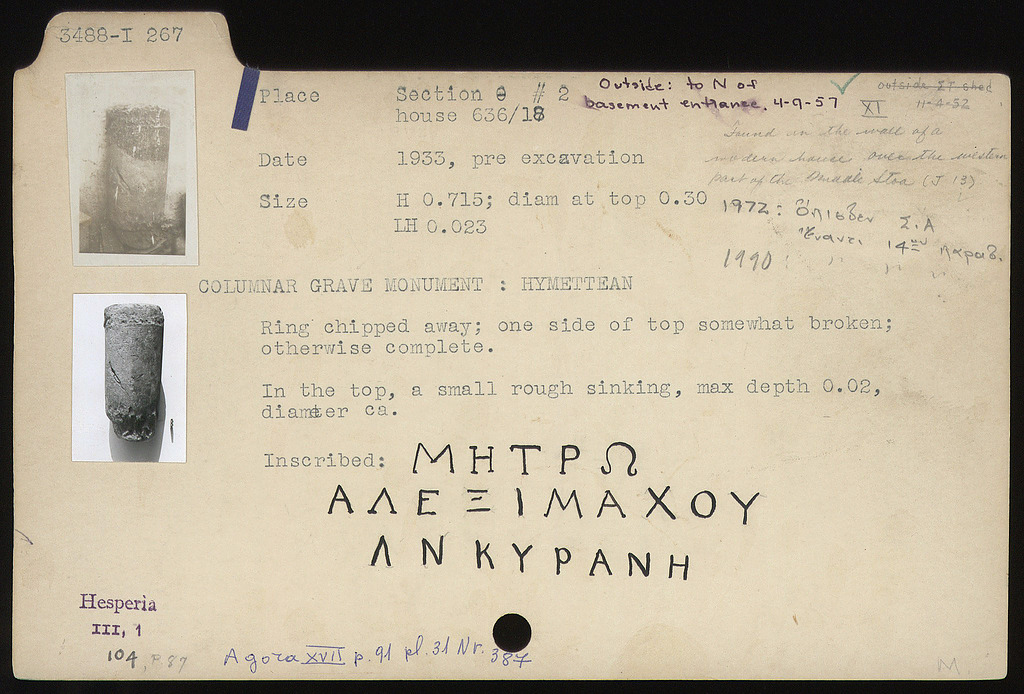 3488-I 267
Place Section Θ # 2
house 636/18
Outside: to N of
basement entrance. 4-9-57
outside ΣΤ shed
XI 11-4-52
Found in the wall of a
modern house over the western
part of the Stoa (J 13)
Date 1933, pre excavation
Size H 0.715; diam at top 0.30
LH 0.023
1972: Ὄπισθεν Σ.Α
Ἔναντι 14ης παραθ.
1990: " " "
COLUMNAR GRAVE MONUMENT : HYMETTEAN
Ring chipped away; one side of top somewhat broken;
otherwise complete.
In the top, a small rough sinking, max depth 0.02,
diameter ca.
Inscribed: ΜΗΤΡΩ
ΑΛΕΞΙΜΑΧΟΥ
ΛΝΚΥΡΑΝΗ
Hesperia
III, 1
104, P. 87
Agora XVII p. 91 pl. 31 Nr. 387
M.